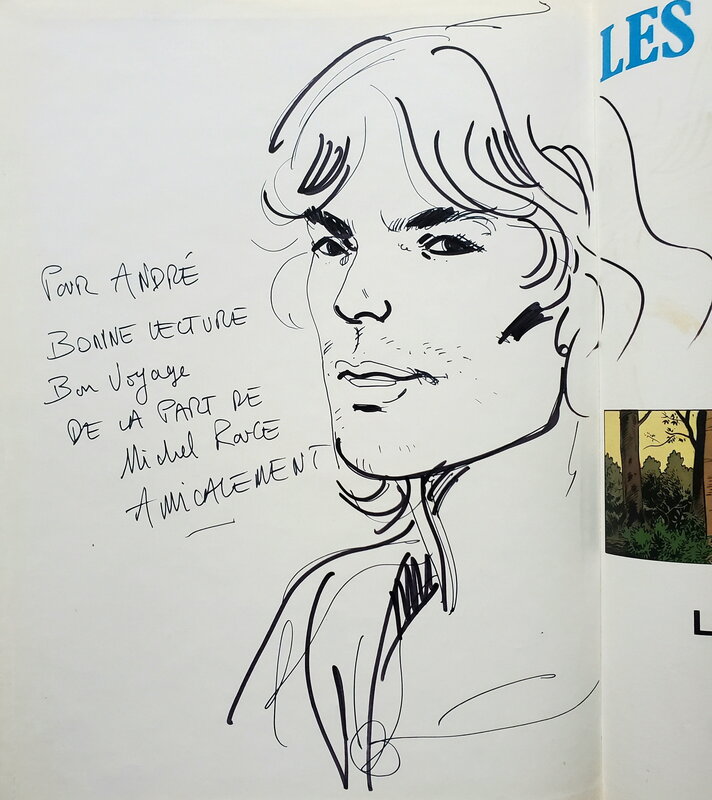 POUR ANDRÉ
BONNE LECTURE
Bon Voyage
DE LA PART DE
Michel Rouge
AMICALEMENT
LES
L